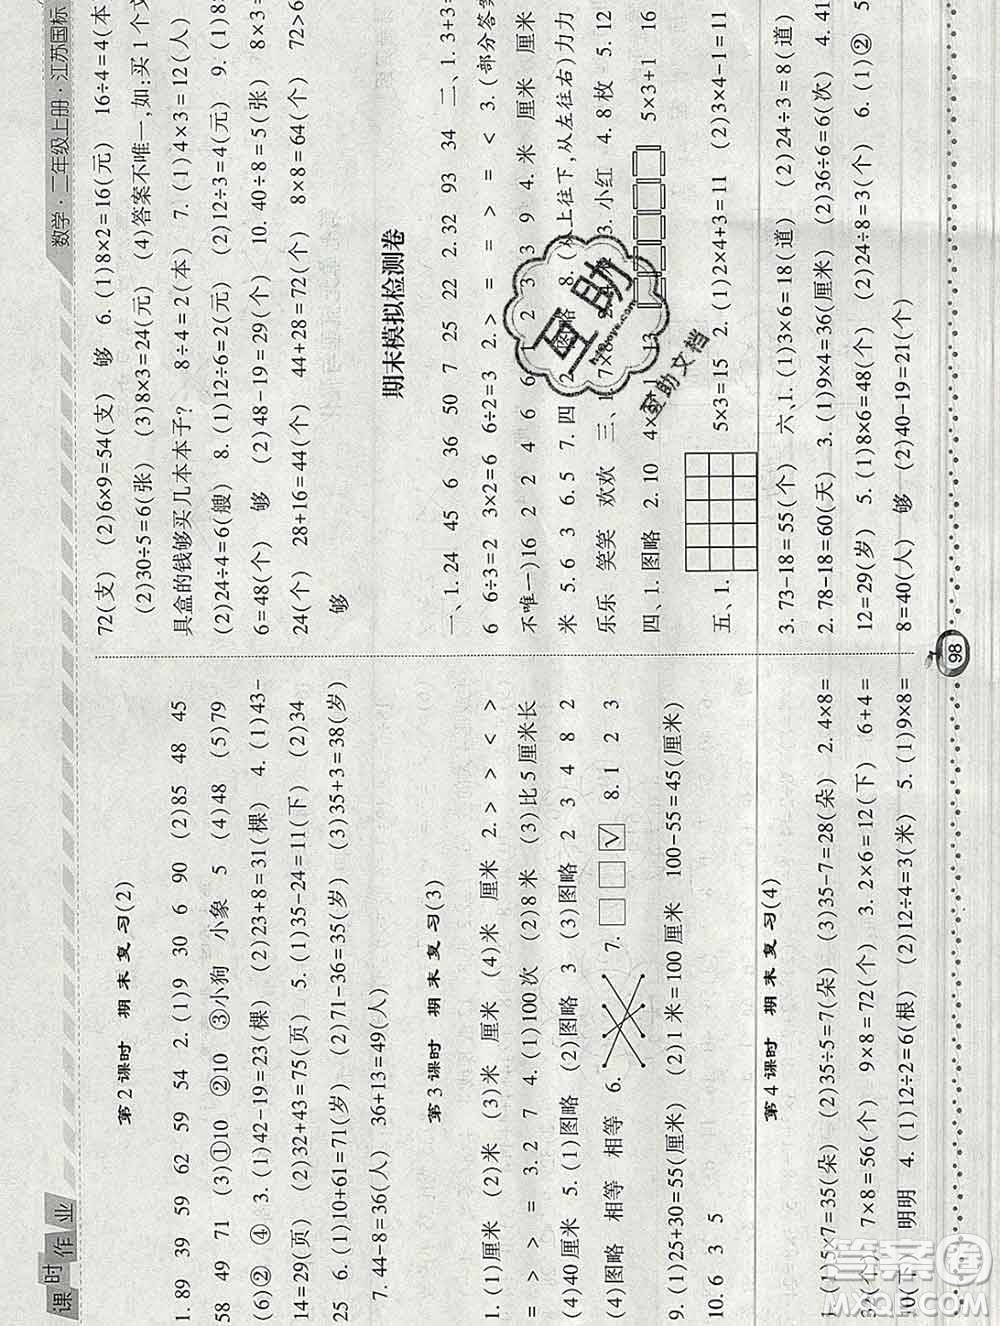 课时作业
数学·二年级上册·江苏国标
第2课时 期末复习(2)
1. 89 39 59 62 59 54 2. (1)9 30 6 90 (2)85 48 45
58 49 71 (3)①10 ②10 ③小狗 小象 5 (4)48 (5)79
(6)② ④ 3. (1)42-19=23(棵) (2)23+8=31(棵) 4. (1)43-
14=29(页) (2)32+43=75(页) 5. (1)35-24=11(下) (2)34
25 6. (1)10+61=71(岁) (2)71-36=35(岁) (3)35+3=38(岁)
7. 44-8=36(人) 36+13=49(人)
第3课时 期末复习(3)
1. (1)厘米 (2)米 (3)米 厘米 (4)米 厘米 2. > > < >
= > > = 3. 2 7 4. (1)100次 (2)8米 (3)比5厘米长
(4)40厘米 5. (1)图略 (2)图略 3 (3)图略 2 3 4 8 2
(4)图略 相等 相等 6. 7. □ □ ☑ 8. 1 2 3
9. (1)25+30=55(厘米) (2)1米=100厘米 100-55=45(厘米)
10. 6 3 5
第4课时 期末复习(4)
1. (1)5×7=35(朵) (2)35÷5=7(朵) (3)35-7=28(朵) 2. 4×8=
32(个) 7×8=56(个) 9×8=72(个) 3. 2×6=12(下) 6+4=
10(下) 明明 4. (1)12÷2=6(根) (2)12÷4=3(米) 5. (1)9×8=
72(支) (2)6×9=54(支) 够 6. (1)8×2=16(元) 16÷4=4(本
(2)30÷5=6(张) (3)8×3=24(元) (4)答案不唯一,如:买1个文
具盒的钱够买几本本子? 8÷4=2(本) 7. (1)4×3=12(人)
(2)24÷4=6(艘) 8. (1)12÷6=2(元) (2)12÷3=4(元) 9. (1)8
6=48(个) 够 (2)48-19=29(个) 10. 40÷8=5(张) 8×3=
24(个) 28+16=44(个) 44+28=72(个) 8×8=64(个) 72>6
够
期末模拟检测卷
一、1. 24 45 6 36 50 7 25 22 2. 32 93 34 二、1. 3+3=
6 6÷3=2 3×2=6 6÷2=3 2. > = = > = < 3. (部分答案
不唯一)16 2 2 4 6 6 1 2 3 3 9 4. 米 厘米 厘米
米 5. 6 3 6. 5 7. 四 2 图略 8. (从上往下,从左往右)力力
乐乐 笑笑 欢欢 三、1. 7×8 3. 小红 4. 8枚 5. 12
四、1. 图略 2. 10 4× 13 5×3+1 16
五、1. 5×3=15 2. (1)2×4+3=11 (2)3×4-1=11
3. 73-18=55(个) 六、1. (1)3×6=18(道) (2)24÷3=8(道)
2. 78-18=60(天) 3. (1)9×4=36(厘米) (2)36÷6=6(次) 4. 41
12=29(岁) 5. (1)8×6=48(个) (2)24÷8=3(个) 6. (1)② 5
8=40(人) 够 (2)40-19=21(个)
98
互助
互助文档
答案